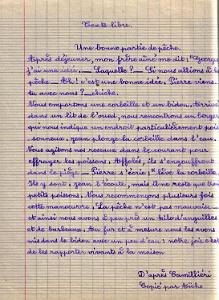 Texte libre.
Une bonne partie de pêche.
Après déjeuner, mon frère aîné me dit : "Georges
j'ai une idée. — Laquelle ? — Si nous allions à la
pêche — Ah ! c'est une bonne idée, Pierre viens-
tu avec nous ? — chiche.
Nous emportons une corbeille et un bidon. Arrivés
dans un lit de l'oued, nous rencontrons un berger
qui nous indique un endroit particulièrement pois-
sonneux, Jean plonge la corbeille dans l'eau.
Nous agitons nos roseaux dans le courant pour
effrayer les poissons. Affolés, ils s'engouffrent
dans le piège — Pierre s'écrie : "lève la corbeille.
Ils y sont, Jean l'écoute, mais il ne reste que trois
petits poissons. Nous recommençons plusieurs fois
cette manœuvre ; La pêche n'est pas mauvaise
et ainsi nous avons à peu près un kilo d'anguilles
et de barbeaux. Au fur et à mesure nous les avons
mis dans le bidon avec un peu d'eau : notre joie c'est
de les rapporter vivants à la maison
D'après Camilliéri
Copié par